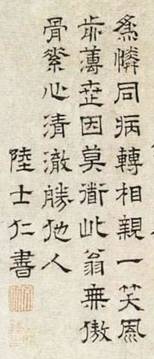 為憐同病轉相親一笑風
前薄世因莫道此翁無傲
骨心清澈勝他人
陸士仁書